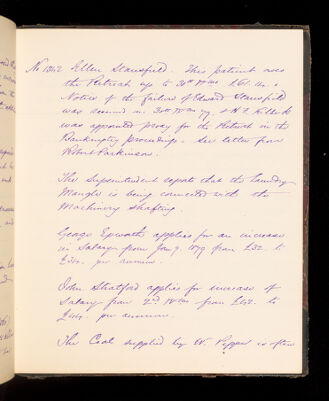 No 1342 Ellen Stansfield. This patient owes
the Retreat up to 31st
Notice of the failure of Edward Stansfield
was received in & H. F. Killick
was appointed proxy for the Retreat in the
Bankruptcy proceedings. See letter from
Robert Parkinson.
The Superintendent reports that the Laundry
Mangle is being connected with the
Machinery shafting.
George Epworth applies for an increase
in Salary from Jan 9. 1879 from £32. to
£34. per annum.
John Stratford applies for increase of
Salary from 2nd from £42. to
per annum.
The Coal supplied by W. Pepper is often